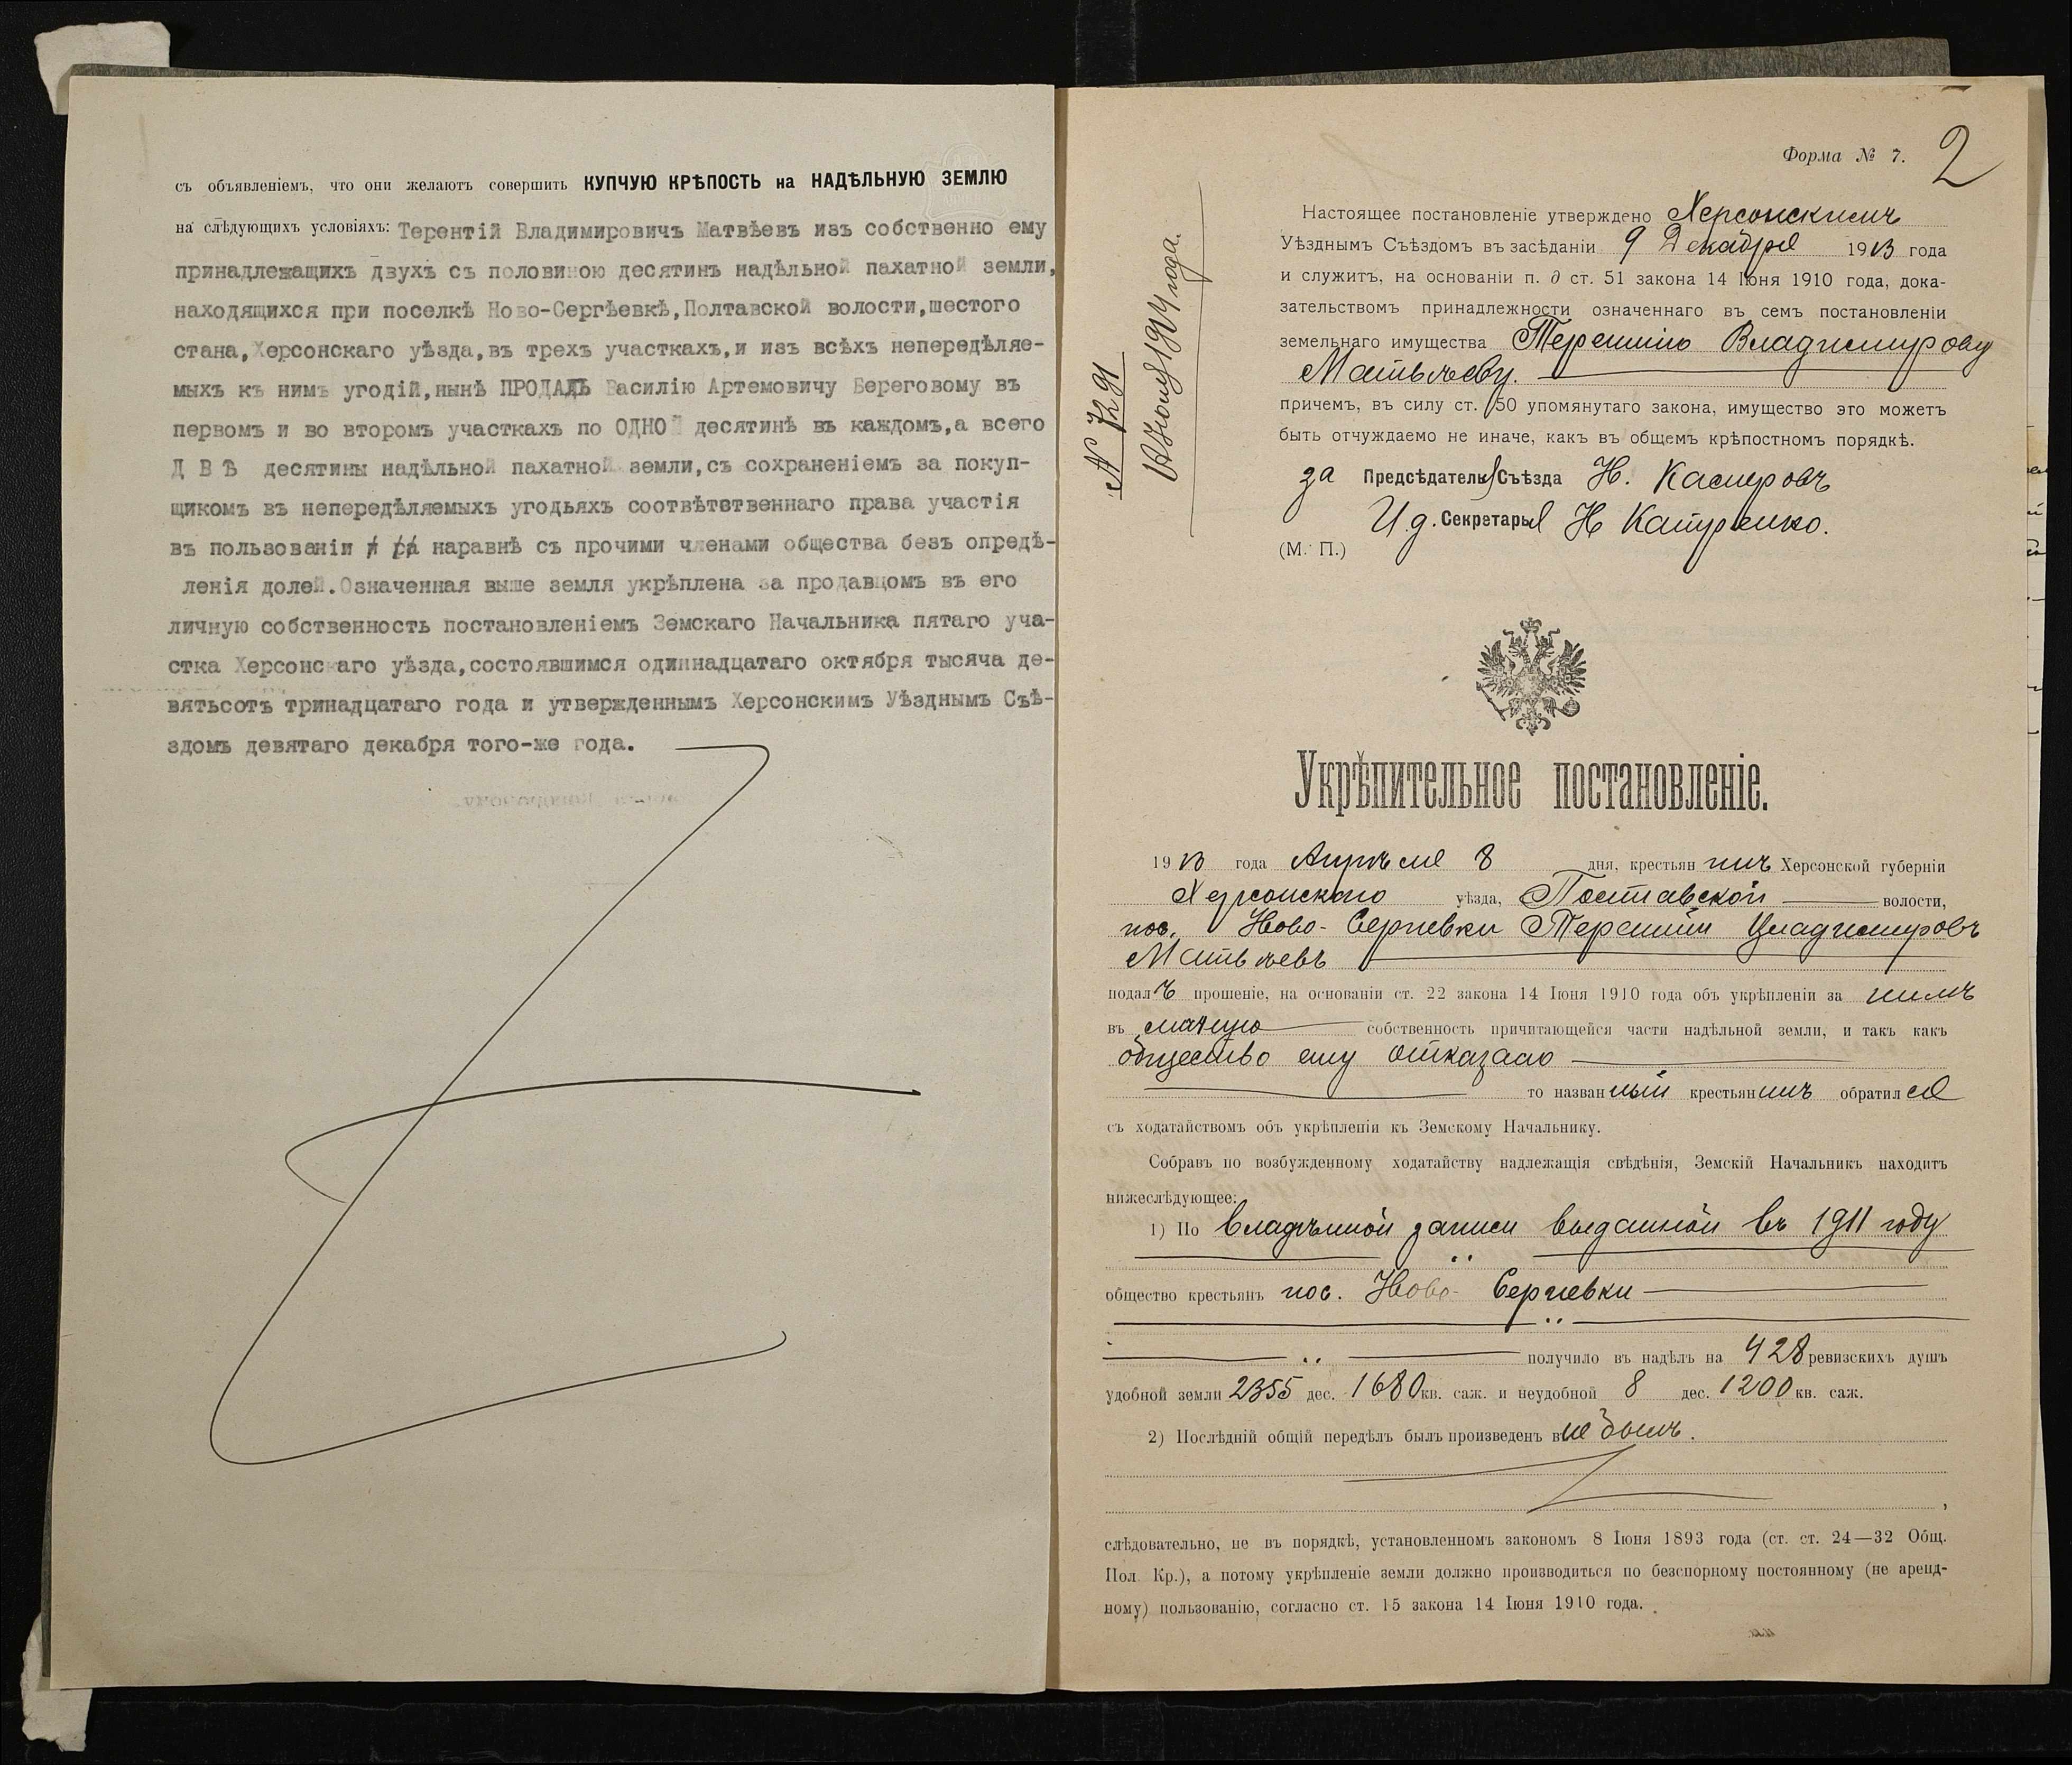 съ объявленіемъ, что они желаютъ совершить КУПЧУЮ КРѢПОСТЬ на НАДѢЛЬНУЮ ЗЕМЛЮ
на слѣдующихъ условіяхъ: Терентій Владимировичъ Матвѣевъ изъ собственно ему
принадлежащихъ двухъ съ половиною десятинъ надѣльной пахатной земли,
находящихся при поселкѣ Ново-Сергѣевкѣ,Полтавской волости,шестого
стана,Херсонскаго уѣзда,въ трехъ участкахъ,и изъ всѣхъ непередѣляе-
мыхъ къ нимъ угодій,нынѣ ПРОДАЛЪ Василію Артемовичу Береговому въ
первомъ и во второмъ участкахъ по ОДНОЙ десятинѣ въ каждомъ,а всего
Д В Ѣ десятины надѣльной пахатной земли,съ сохраненіемъ за покуп-
щикомъ въ непередѣляемыхъ угодьяхъ соотвѣтственнаго права участія
въ пользованіи наравнѣ съ прочими членами общества безъ опредѣ-
ленія долей.Означенная выше земля укрѣплена за продавцомъ въ его
личную собственность постановленіемъ Земскаго Начальника пятаго уча-
стка Херсонскаго уѣзда,состоявшимся одиннадцатаго октября тысяча де-
вятьсотъ тринадцатаго года и утвержденнымъ Херсонскимъ Уѣзднымъ Съѣ-
здомъ девятаго декабря того-же года.
Форма № 7.
2
№ 7291
1914 года.
Настоящее постановленіе утверждено Херсонскимъ
Уѣзднымъ Съѣздомъ въ засѣданіи 9 Декабря 1913 года
и служитъ, на основаніи п. д ст. 51 закона 14 Іюня 1910 года, дока-
зательствомъ принадлежности означеннаго въ семъ постановленіи
земельнаго имущества Терентію Владимирову
Матвѣеву.
причемъ, въ силу ст. 50 упомянутаго закона, имущество это можетъ
быть отчуждаемо не иначе, какъ въ общемъ крѣпостномъ порядкѣ.
За Предсѣдателя Съѣзда Н.
И.д. Секретаря Н
(М. П.)
Укрѣпительное постановленіе.
1913 года Апрѣля 8 дня, крестьянинъ Херсонской губерніи
Херсонскаго уѣзда, Полтавской волости,
пос. Ново-Сергѣевки Терентій Владимировъ
Матвѣевъ
подалъ прошеніе, на основаніи ст. 22 закона 14 Іюня 1910 года объ укрѣпленіи за нимъ
въ личную собственность причитающейся части надѣльной земли, и такъ какъ
общество ему отказало
то названный крестьянинъ обратился
съ ходатайствомъ объ укрѣпленіи къ Земскому Начальнику.
Собравъ по возбужденному ходатайству надлежащія свѣдѣнія, Земскій Начальникъ находитъ
нижеслѣдующее:
1) По владѣнной записи выданной въ 1911 году
общество крестьянъ пос. Ново-Сергѣевки
получило въ надѣлъ на 428 ревизскихъ душъ
удобной земли 2355 дес. 1680 кв. саж. и неудобной 8 дес. 1200 кв. саж.
2) Послѣдній общій передѣлъ былъ произведенъ в не былъ.
слѣдовательно, не въ порядкѣ, установленномъ закономъ 8 Іюня 1893 года (ст. ст. 24—32 Общ.
Пол. Кр.), а потому укрѣпленіе земли должно производиться по безспорному постоянному (не аренд-
ному) пользованію, согласно ст. 15 закона 14 Іюня 1910 года.